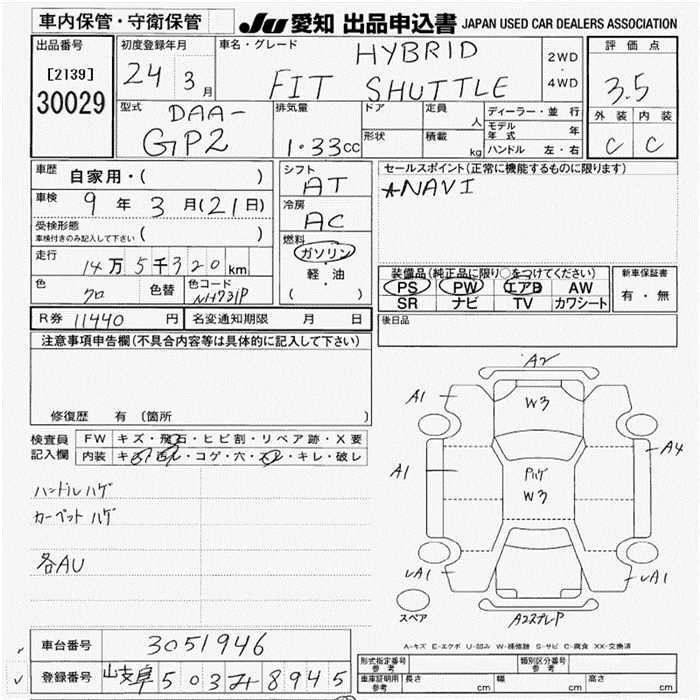 車内保管・守衛保管 JU 愛知 出品申込書 JAPAN USED CAR DEALERS ASSOCIATION
出品番号
[2139]
30029
初度登録年月
24 3月
車名・グレード
HYBRID
FIT SHUTTLE
2WD
・
4WD
評価点
3.5
外装 内装
C C
型式
DAA-
GP2
排気量
1.33cc
ドア
形状
定員 人
積載 kg
ディーラー・並行
モデル年式 年
ハンドル 左・右
車歴 自家用・( )
車検 9年3月(21日)
受検形態
車検付きのみ記入して下さい ( )
走行
14万5千320km
色 クロ 色替 色コード NH731P
シフト
AT
冷房
AC
燃料
ガソリン
・
軽・油
( )
セールスポイント(正常に機能するものに限ります)
☆NAVI
装備品(純正品に限り○をつけてください)
PS PW エアB AW
SR ナビ TV カワシート
新車保証書
有・無
R券 11440 円 名変通知期限 月 日
後日品
注意事項申告欄(不具合内容等は具体的に記入して下さい)
修復歴 有 (箇所 )
検査員記入欄
FW キズ・飛石・ヒビ割・リペア跡・X要
内装 キズ・汚レ・コゲ・穴・スレ・キレ・破レ
ハンドルハゲ
カーペットハゲ
各AU
A2
A1
W3
A4
A1
Pハゲ
W3
A1
A1
スペア
A2スレP
A-キズ E-エクボ U-凹み W-補修跡 S-サビ C-腐食 XX-交換済
車台番号 3051946
登録番号 岐阜 503 8945
形式指定番号 参考
類別区分番号 参考
車庫証明用 参考 長さ cm 幅 cm 高さ cm